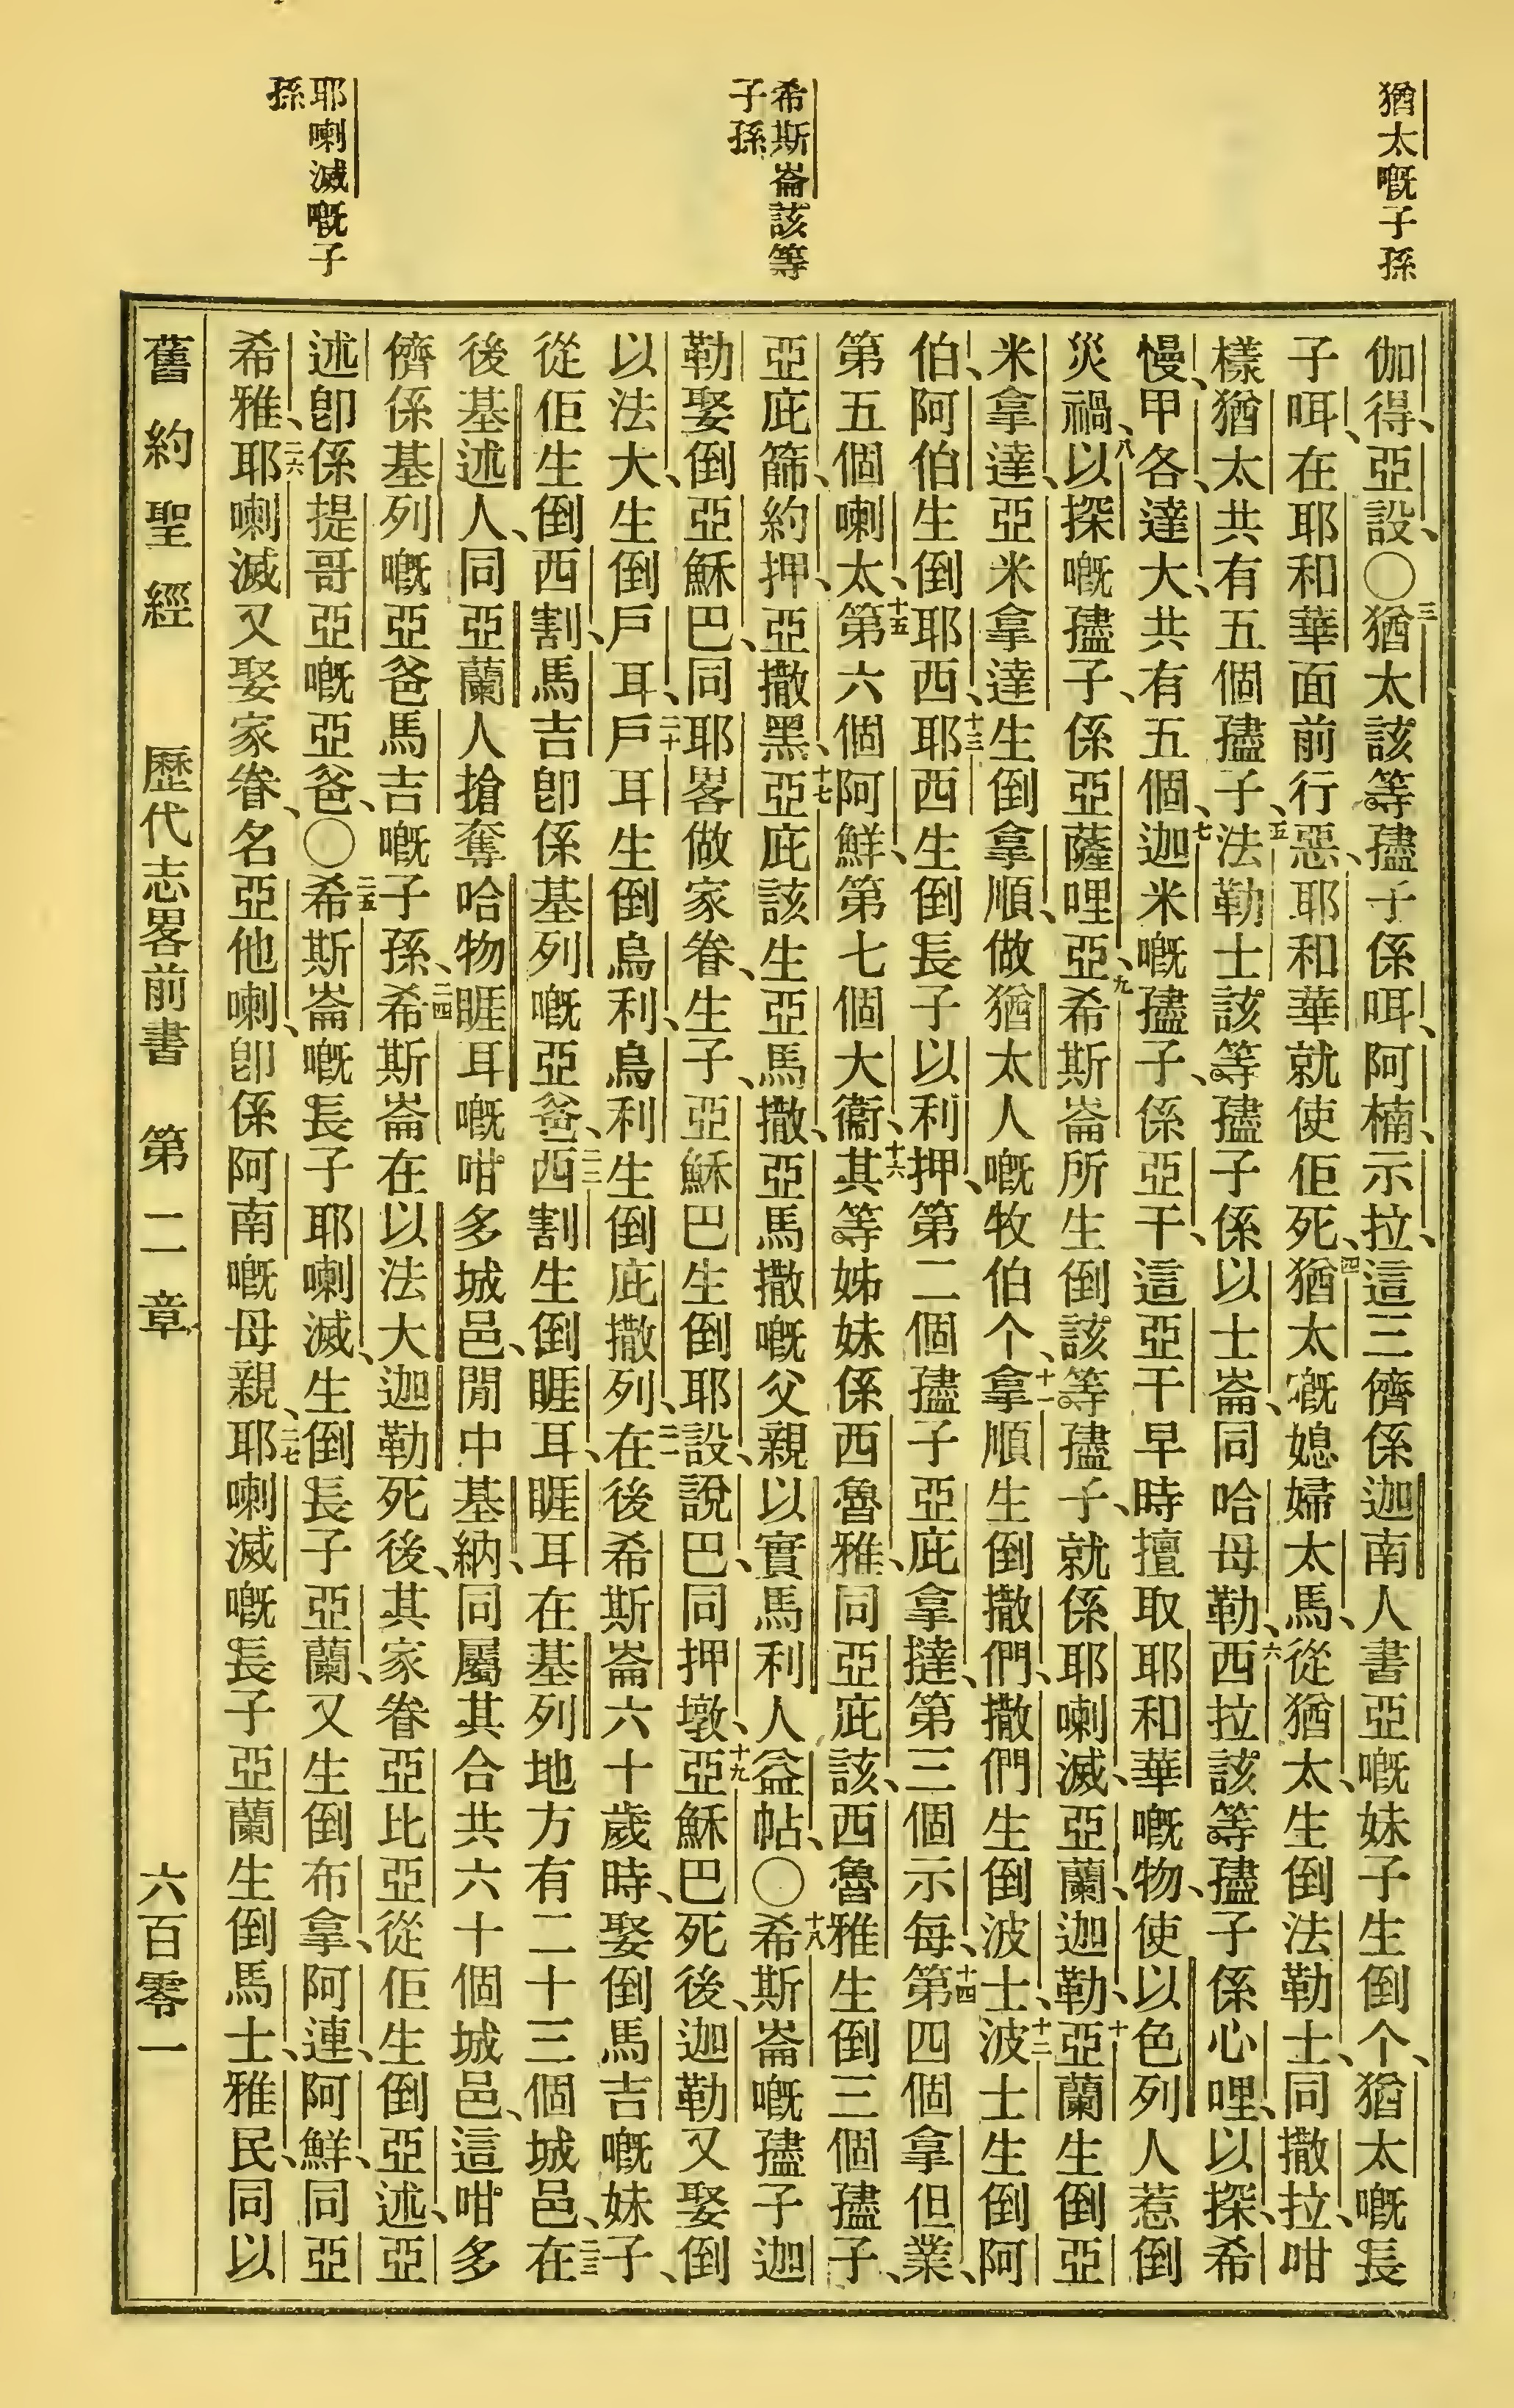 猶太嘅子孫
希斯崙該等
子孫
耶喇滅嘅子
孫
伽得、亞設、〇三猶太該等孻子係咡、阿楠、示拉、這三儕係迦南人書亞嘅妹子生倒个、猶太嘅長
子咡、在耶和華面前行惡、耶和華就使佢死、四猶太嘅媳婦太馬、從猶太、生倒法勒士、同撒拉、咁
樣猶太共有五個孻子、五法勒士該等孻子係以士崙、同哈母勒、六西拉該等孻子係心哩、以探、希
慢、甲各、達大、共有五個、七迦米嘅孻子、係亞干、這亞干早時擅取耶和華嘅物、使以色列人惹倒
災禍、八以探嘅孻子、係亞薩哩亞、九希斯崙所生倒該等孻子、就係耶喇滅、亞蘭、迦勒、十亞蘭生倒亞
米拿達、亞米拿達生倒拿順、做猶太人嘅牧伯个、十一拿順生倒撒們、撒們生倒波士、十二波士生倒阿
伯、阿伯生倒耶西、十三耶西生倒長子以利押、第二個孻子亞庇拿撻、第三個示每、十四第四個拿但業、
第五個喇太、十五第六個阿鮮、第七個大衞、十六其等姊妹係西魯雅、同亞庇該、西魯雅生倒三個孻子、
亞庇篩、約押、亞撒黑、十七亞庇該生亞馬撒、亞馬撒嘅父親以實馬利人益帖、〇十八希斯崙嘅孻子迦
勒娶倒亞穌巴、同耶畧做家眷、生子、亞穌巴生倒耶設、說巴、同押墩、十九亞穌巴死後、迦勒又娶倒
以法大、生倒戶耳、二十戶耳生倒烏利、烏利生倒庇撒列、二一在後希斯崙六十歲時、娶倒馬吉嘅妹子、
從佢生倒西割、馬吉卽係基列嘅亞爸、二二西割生倒睚耳、睚耳在基列地方有二十三個城邑、二三在
後基述人、同亞蘭人搶奪哈物睚耳嘅咁多城邑、閒中基納、同屬其合共六十個城邑、這咁多
儕係基列嘅亞爸馬吉嘅子孫、二四希斯崙在以法大迦勒死後、其家眷亞比亞從佢生倒亞述、亞
述卽係提哥亞嘅亞爸、〇二五希斯崙嘅長子耶喇滅、生倒長子亞蘭、又生倒布拿、阿連、阿鮮、同亞
希雅、二六耶喇滅又娶家眷、名亞他喇、卽係阿南嘅母親、二七耶喇滅嘅長子亞蘭生倒馬士、雅民、同以
舊約聖經 歷代志畧前書 第二章 六百零一